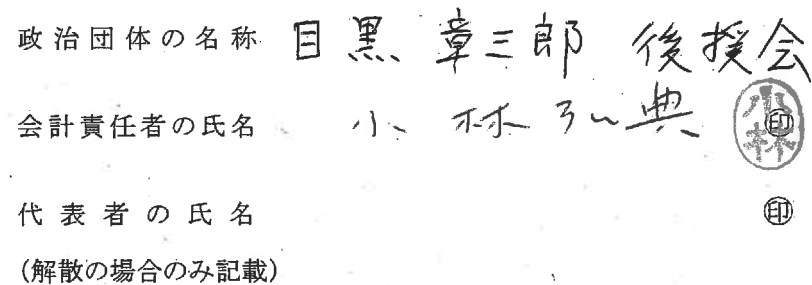 政治団体の名称 目黒章三郎 後援会
会計責任者の氏名 小林弘典 ㊞ 小林
代表者の氏名 ㊞
(解散の場合のみ記載)